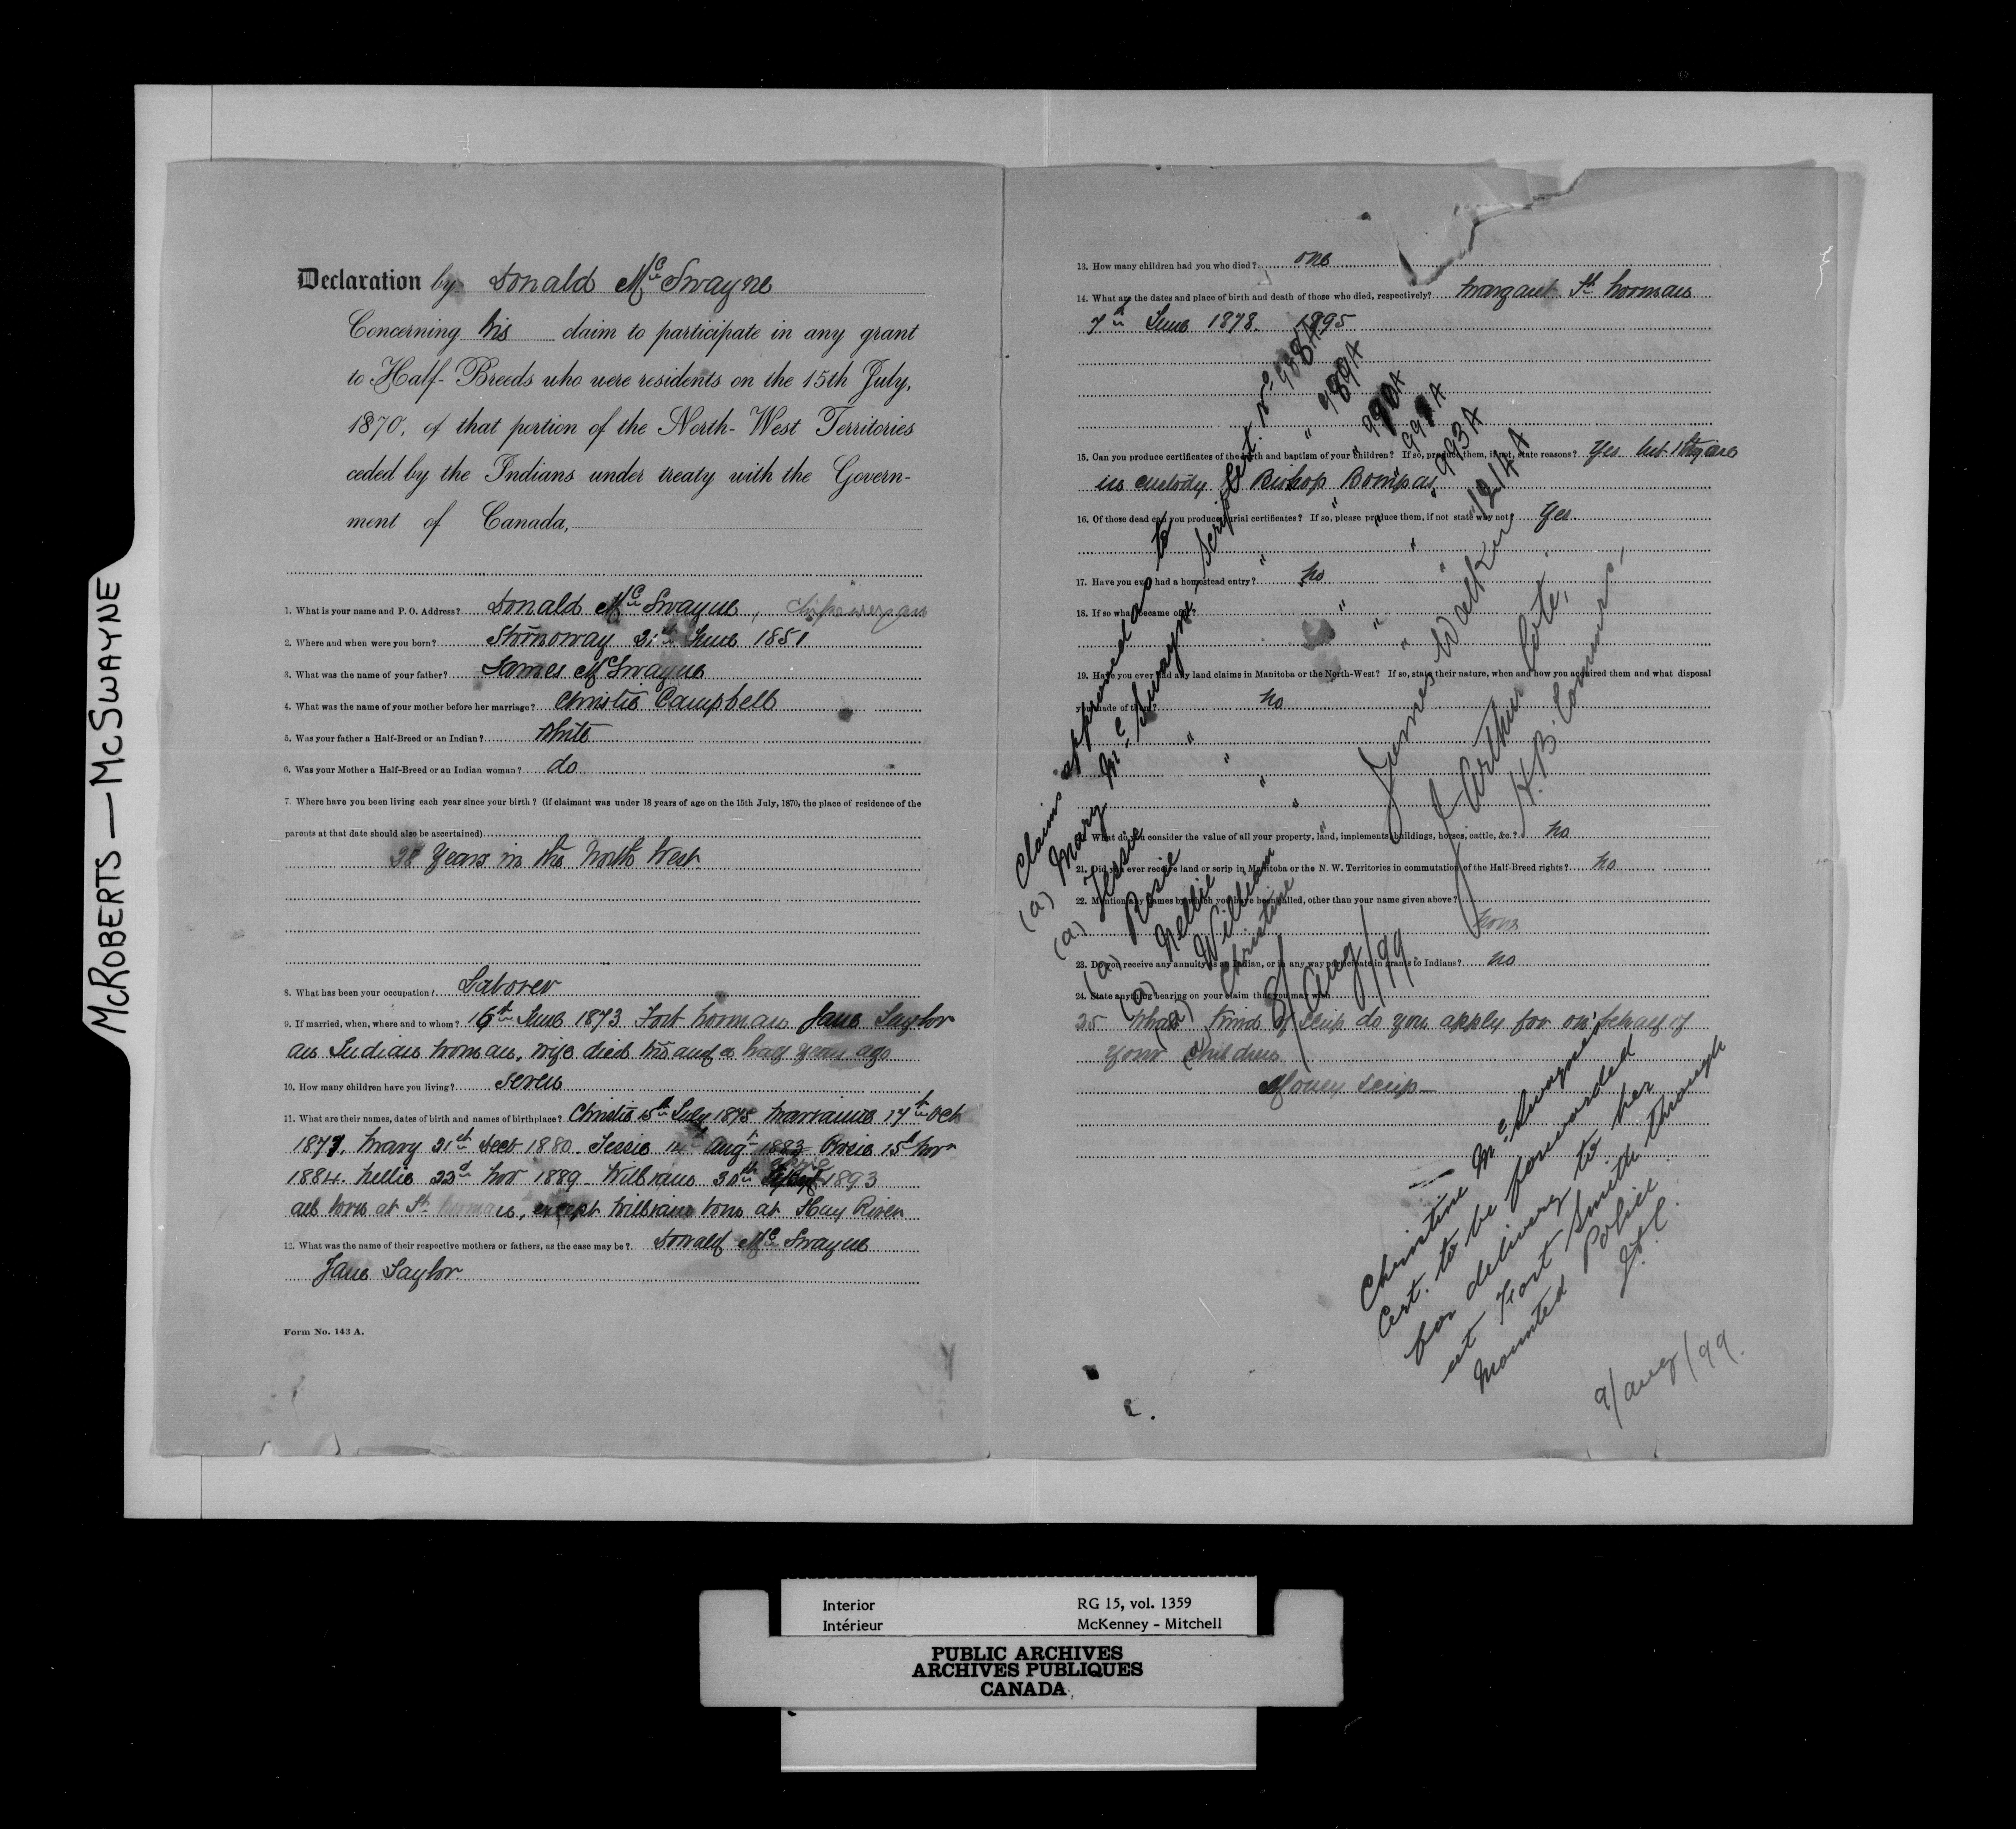 McROBERTS — McSWAYNE
Declaration by Donald McSwayne
Concerning his claim to participate in any grant
to Half-Breeds who were residents on the 15th July,
1870, of that portion of the North-West Territories
ceded by the Indians under treaty with the Govern-
ment of Canada,
1. What is your name and P. O. Address? Donald McSwayne, Chipewyan
2. Where and when were you born? Stornoway 21st June 1851
3. What was the name of your father? James McSwayne
4. What was the name of your mother before her marriage? Christie Campbell
5. Was your father a Half-Breed or an Indian? White
6. Was your Mother a Half-Breed or an Indian woman? do
7. Where have you been living each year since your birth? (if claimant was under 18 years of age on the 15th July, 1870, the place of residence of the
parents at that date should also be ascertained)
28 Years in the North West
8. What has been your occupation? Laborer
9. If married, when, where and to whom? 16th June 1873 Fort Norman Jane Taylor
an Indian woman, wife died two and a half years ago
10. How many children have you living? Seven
11. What are their names, dates of birth and names of birthplace? Christie 15th July 1875 Marianne 17th Oct
1877, Mary 21st Decr 1880. Jessie Augt 1883 Rosie 15th Novr
1884. Nellie 22d Nov 1889. William 30th 1893
all born at Ft Norman, except William born at Hay River
12. What was the name of their respective mothers or fathers, as the case may be? Donald McSwayne
Jane Taylor
Form No. 143 A.
13. How many children had you who died? one
14. What are the dates and place of birth and death of those who died, respectively? Margaret Ft Norman
7th June 1878 1895
15. Can you produce certificates of the birth and baptism of your children? If so, produce them, if not, state reasons? Yes but they are
in custody of Bishop Bompas
16. Of those dead can you produce burial certificates? If so, please produce them, if not state why not? Yes.
17. Have you ever had a homestead entry? No
18. If so what became of it?
19. Have you ever had any land claims in Manitoba or the North-West? If so, state their nature, when and how you acquired them and what disposal
you made of them? No
20. What do you consider the value of all your property, land, implements, buildings, horses, cattle, &c.? No
21. Did you ever receive land or scrip in Manitoba or the N. W. Territories in commutation of the Half-Breed rights? No
22. Mention any names by which you have been called, other than your name given above?
none
23. Do you receive any annuity as an Indian, or in any way participate in grants to Indians? No
24. State anything bearing on your claim that you may wish
25 What kind of scrip do you apply for on behalf of
your children
Money scrip
Claim approved as to
(a) Mary McSwayne Scrip Cert. No 988A
(a) Jessie " " " 989A
(a) Rosie " " " 990A
(a) Nellie " " " 991A
(a) William " " " 993A
(a) Christine " " " 1214A
8/Aug/99
James Walker
J. Arthur Coté,
H.B. Comrs,
Christine McSwayne's
Cert. to be forwarded
for delivery to her
at Fort Smith through
Mounted Police
9/Aug/99.
Interior RG 15, vol. 1359
Intérieur McKenney - Mitchell
PUBLIC ARCHIVES
ARCHIVES PUBLIQUES
CANADA